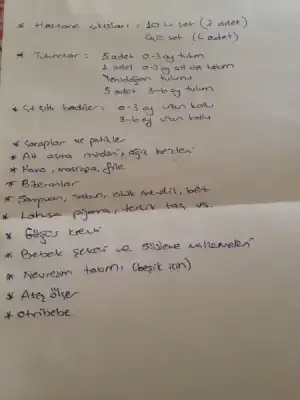 * Hastane çıkışları: 10 lu set (2 adet)
set (4 adet)
* Tulumlar: 5 adet 0-3 ay tulum
1 adet 0-3 ay alt üst takım
Yenidoğan tulumu
5 adet 3-6 ay tulum
* Çıtçıtlı badiler: 0-3 ay uzun kollu
3-6 ay uzun kollu
* Çoraplar ve patikler
* Alt açma minderi, ağız bezleri
* Kova, maşrapa, file
* Biberonlar
* Şampuan, sabun, ıslak mendil, bez
* Lohusa pijama, terlik taç vs.
* Göğüs kremi
* Bebek şekeri ve süsleme malzemeleri
* Nevresim takımı (beşik için)
* Ateş ölçer
* otribebe